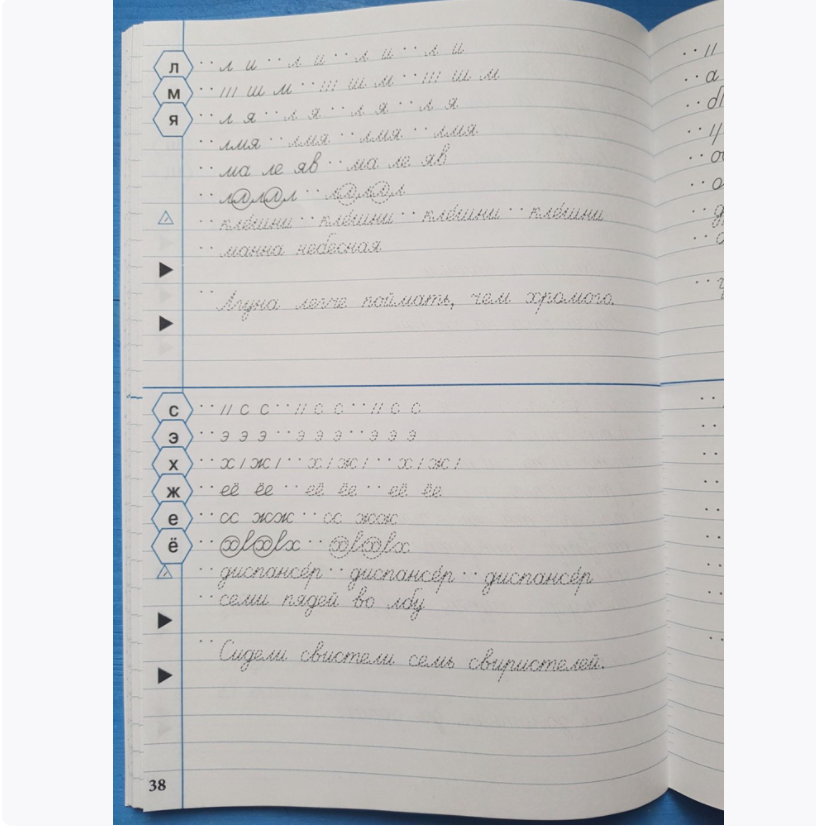 л
м
я
л и л и л и л и
ш м ш м ш м
л я л я л я л я
лмя лмя лмя лмя
ма ле яв ма ле яв
ллллл ллллл
кле́шни кле́шни кле́шни кле́шни
манна небесная
Лгуна легче поймать, чем хромого.
с
э
х
ж
е
ё
с с с с с с
э э э э э э э э э
х ж х ж х ж
её ёе её ёе её ёе
сс жжж сс жжж
диспансе́р диспансе́р диспансе́р
семи пядей во лбу
Сидели свистели семь свиристелей.
38
а